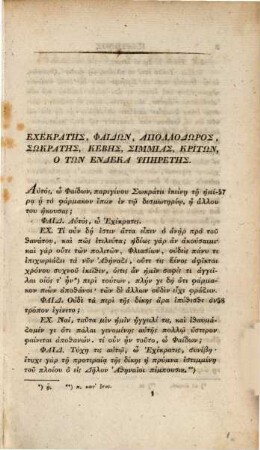 ΕΧΕΚΡΑΤΗΣ, ΦΑΙΔΩΝ, ΑΠΟΛΛΟΔΩΡΟΣ,
ΣΩΚΡΑΤΗΣ, ΚΕΒΗΣ, ΣΙΜΜΙΑΣ, ΚΡΙΤΩΝ,
Ο ΤΩΝ ΕΝΔΕΚΑ ΥΠΗΡΕΤΗΣ.
Αὐτὸς, ὦ Φαίδων, παρεγένου Σωκράτει ἐκείνῃ τῇ ἡμέ-57
ρᾳ ᾗ τὸ φάρμακον ἔπιεν ἐν τῷ δεσμωτηρίῳ, ἢ ἄλλου
του ἤκουσας;
ΦΑΙΔ. Αὐτὸς, ὦ Ἐχέκρατες.
ΕΧ. Τί οὖν δή ἐστιν ἅττα εἶπεν ὁ ἀνὴρ πρὸ τοῦ
θανάτου, καὶ πῶς ἐτελεύτα; ἡδέως γὰρ ἂν ἀκούσαιμι·
καὶ γὰρ οὔτε τῶν πολιτῶν, Φλιασίων, οὐδεὶς πάνυ τι
ἐπιχωριάζει τὰ νῦν Ἀθήναζε, οὔτε τις ξένος ἀφῖκται
χρόνου συχνοῦ ἐκεῖθεν, ὅστις ἂν ἡμῖν σαφές τι ἀγγεῖ-
λαι οἷός τ' ἦν*) περὶ τούτων, πλήν γε δὴ ὅτι φάρμα-
κον πιὼν ἀποθάνοι· τῶν δὲ ἄλλων οὐδὲν εἶχε φράζειν.
ΦΑΙΔ. Οὐδὲ τὰ περὶ τῆς δίκης ἄρα ἐπύθεσθε ὃν58
τρόπον ἐγένετο;
ΕΧ. Ναί, ταῦτα μὲν ἡμῖν ἤγγειλέ τις, καὶ ἐθαυμά-
ζομέν γε ὅτι πάλαι γενομένης αὐτῆς πολλῷ ὕστερον
φαίνεται ἀποθανών. τί οὖν ἦν τοῦτο, ὦ Φαίδων;
ΦΑΙΔ. Τύχη τις αὐτῷ, ὦ Ἐχέκρατες, συνέβη·
ἔτυχε γὰρ τῇ προτεραίᾳ τῆς δίκης ἡ πρύμνα ἐστεμμένη
τοῦ πλοίου ὃ εἰς Δῆλον Ἀθηναῖοι πέμπουσιν**)
*) ᾖ. **) π. κατ' ἔτος.
1